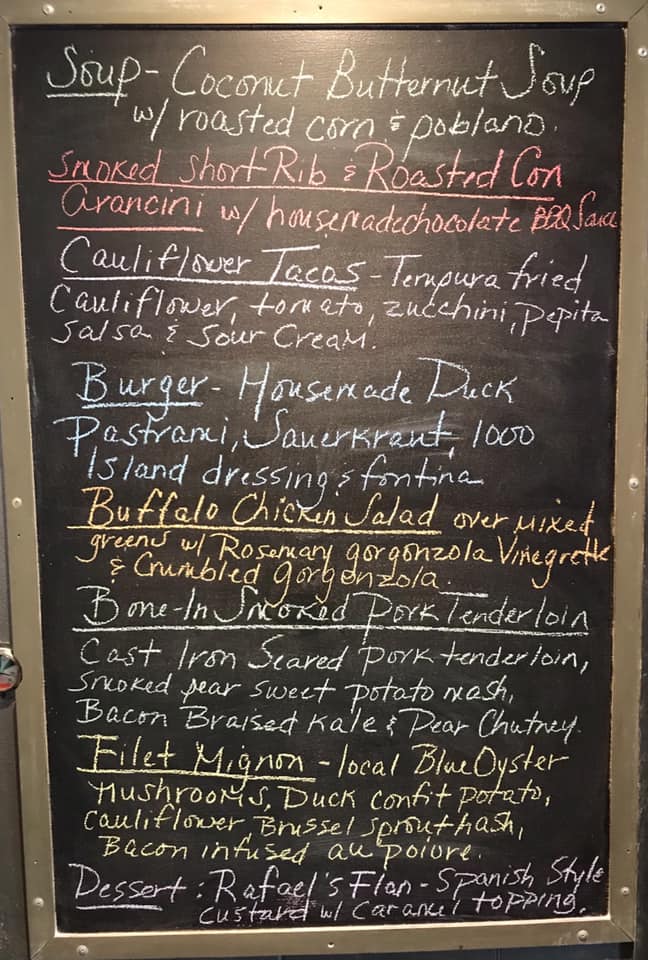 Soup - Coconut Butternut Soup
w/ roasted corn & poblano.
Smoked Short Rib & Roasted Con
arancini w/ housemade chocolate BBQ Sauce
Cauliflower Tacos - Tempura fried
Cauliflower, tomato, zucchini, pepita
Salsa & Sour Cream.
Burger - Housemade Duck
Pastrami, Sauerkraut, 1000
Island dressing & fontina
Buffalo Chicken Salad over mixed
greens w/ Rosemary gorgonzola Vinegrette
& Crumbled gorgonzola.
Bone-In Smoked Pork Tenderloin
Cast Iron Seared pork tenderloin,
smoked pear sweet potato mash,
Bacon Braised Kale & Pear Chutney.
Filet Mignon - local Blue Oyster
Mushrooms, Duck confit potato,
cauliflower, Brussel sprout hash,
Bacon infused au poivre.
Dessert: Rafael's Flan - Spanish Style
custard w/ Caramel topping.